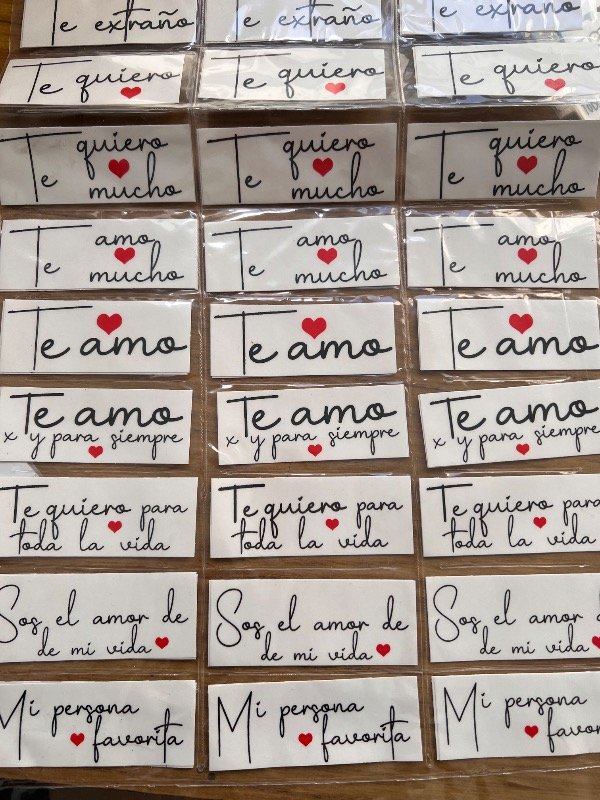 Te extraño
Te extraño
Te extraño
Te quiero
Te quiero
Te quiero
Te quiero
mucho
Te quiero
mucho
Te quiero
mucho
Te amo
mucho
Te amo
mucho
Te amo
mucho
Te amo
Te amo
Te amo
Te amo
x y para siempre
Te amo
x y para siempre
Te amo
x y para siempre
Te quiero para
toda la vida
Te quiero para
toda la vida
Te quiero para
toda la vida
Sos el amor de
de mi vida
Sos el amor de
de mi vida
Sos el amor de
de mi vida
Mi persona
favorita
Mi persona
favorita
Mi persona